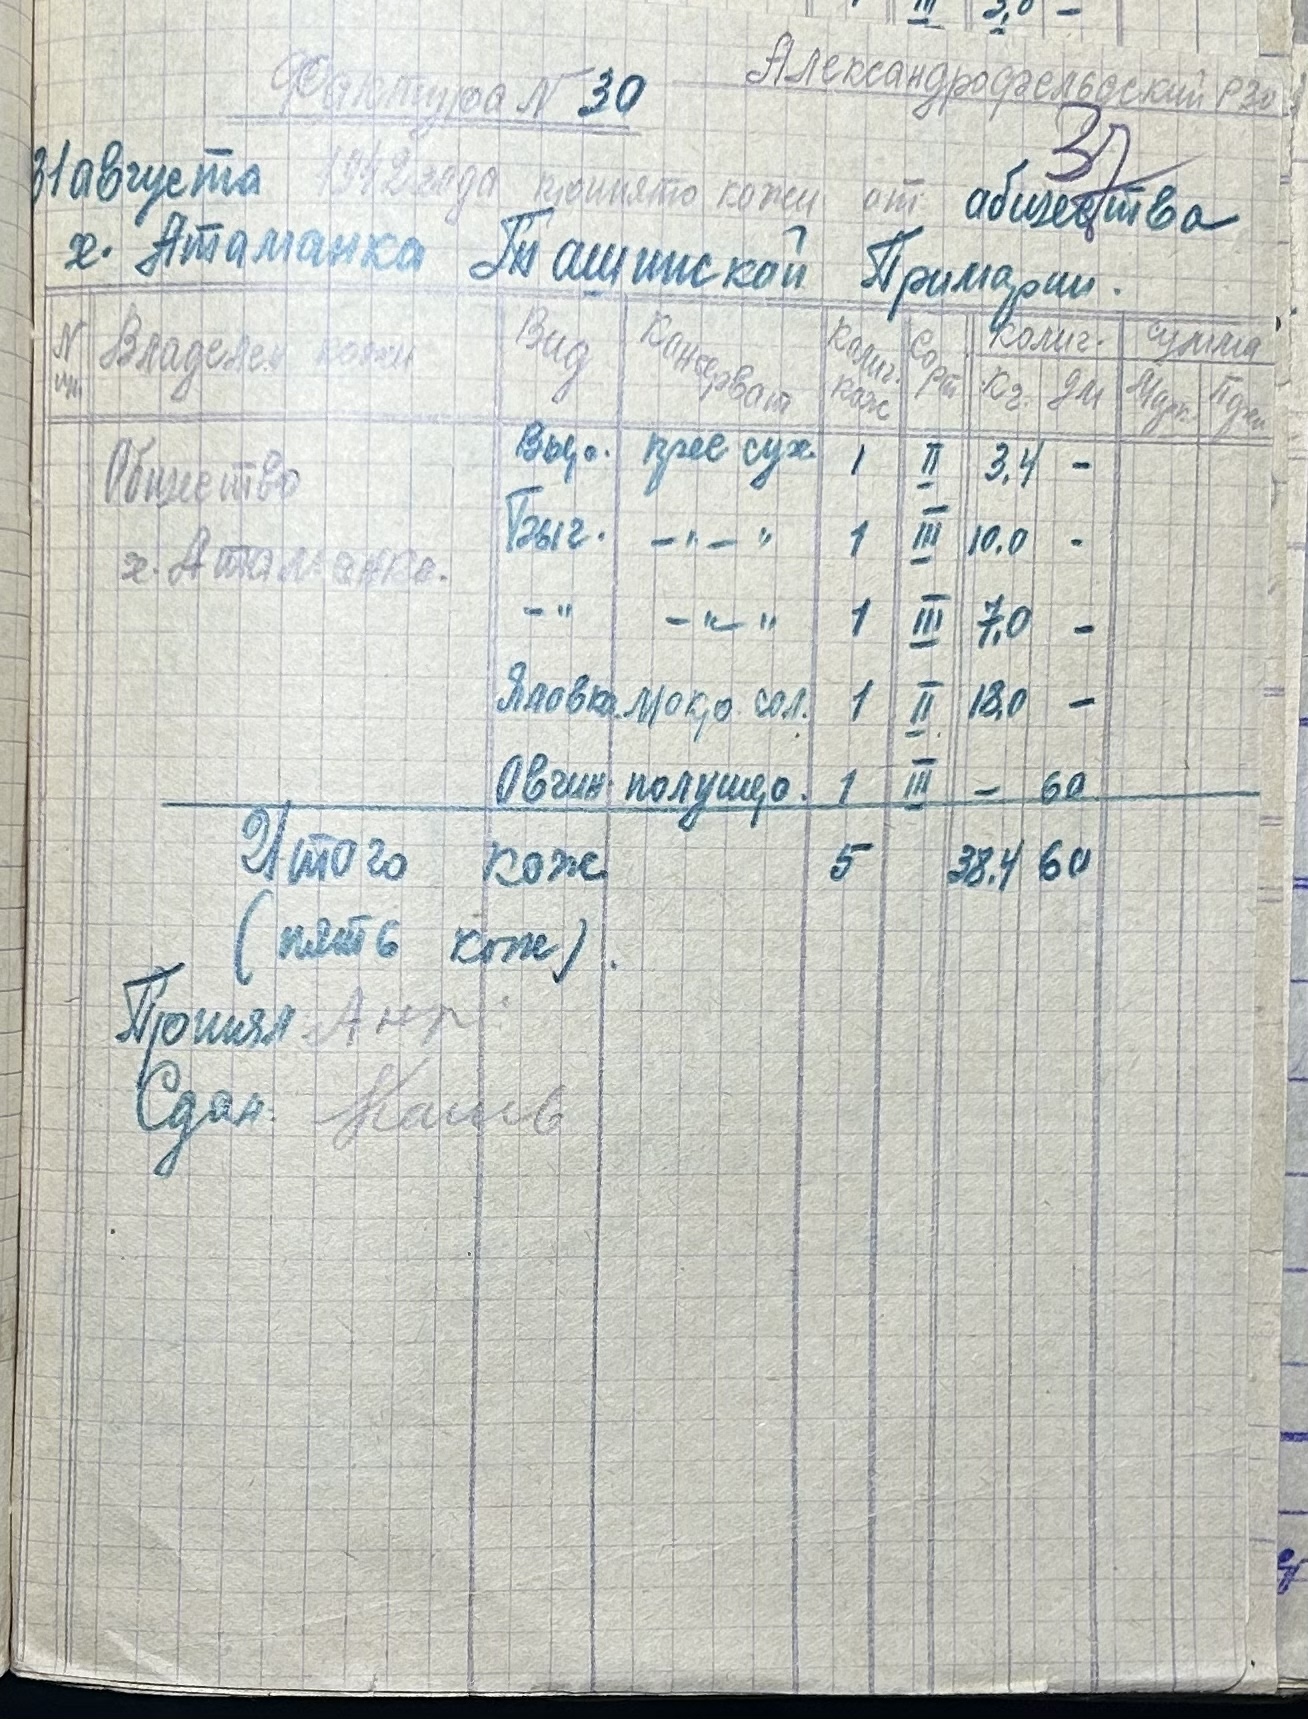 III 3,0 -
Фактура N 30 Александрофельдский РЗО
37
31 августа 1942 года принято кожи от общества
х. Атаманка Ташинской Примарии.
N пп Владелец кожи Вид Консерват Колич. кож Сорт Колич. Сумма
Кг. Дм Марк.
Общество Выр. прес сух. 1 II 3,4 -
х. Атаманка. Быч. -"-" 1 III 10.0 -
-" -"-" 1 III 7,0 -
Яловка мокро сол. 1 II 18,0 -
Овчин. полушер. 1 III - 60
Итого кож 5 38.4 60
(пять кож).
Принял
Сдан.